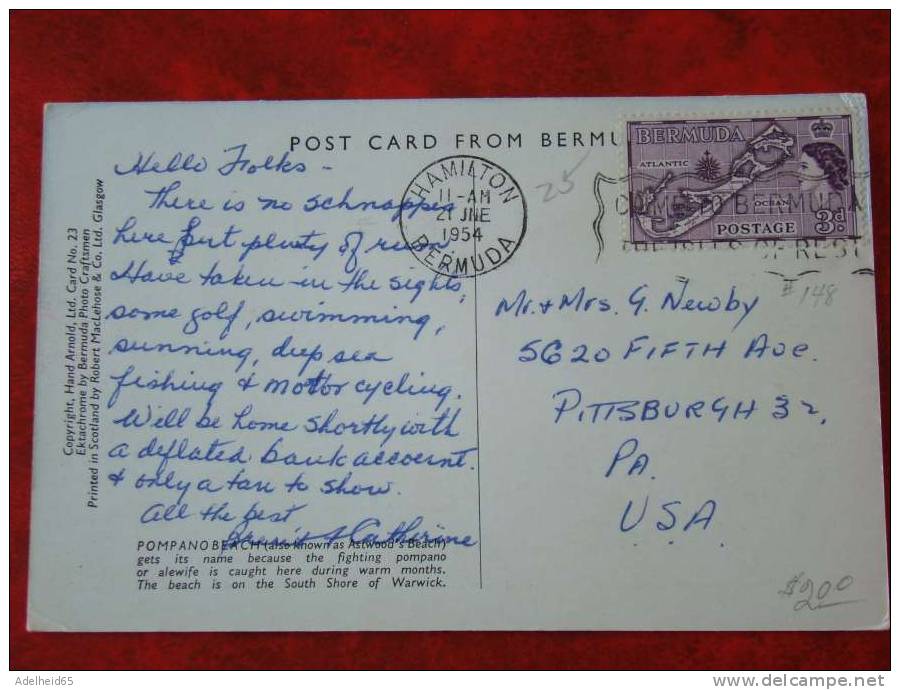 POST CARD FROM BERMU
BERMUDA
ATLANTIC
OCEAN
POSTAGE 3d
HAMILTON
11-AM
21 JNE
1954
BERMUDA
COME TO BERMUDA
THE ISLES OF REST
25
#148
Hello Folks -
There is no schnapps
here but plenty of rum
Have taken in the sights,
some golf, swimming,
sunning, deep sea
fishing & motor cycling.
Will be home shortly with
a deflated bank account.
& only a tan to show.
All the best
& Catherine
Mr. & Mrs. G. Newby
5620 FIFTH AVE.
PITTSBURGH 32,
PA.
USA
$2.00
POMPANO BEACH (also known as Astwood's Beach)
gets its name because the fighting pompano
or alewife is caught here during warm months.
The beach is on the South Shore of Warwick.
Copyright, Hand Arnold, Ltd. Card No. 23
Ektachrome by Bermuda Photo Craftsmen
Printed in Scotland by Robert MacLehose & Co. Ltd. Glasgow
Adelheid65
www.delcampe.net